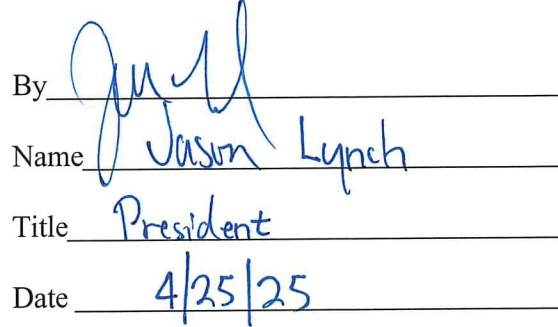 By
Name Jason Lynch
Title President
Date 4/25/25